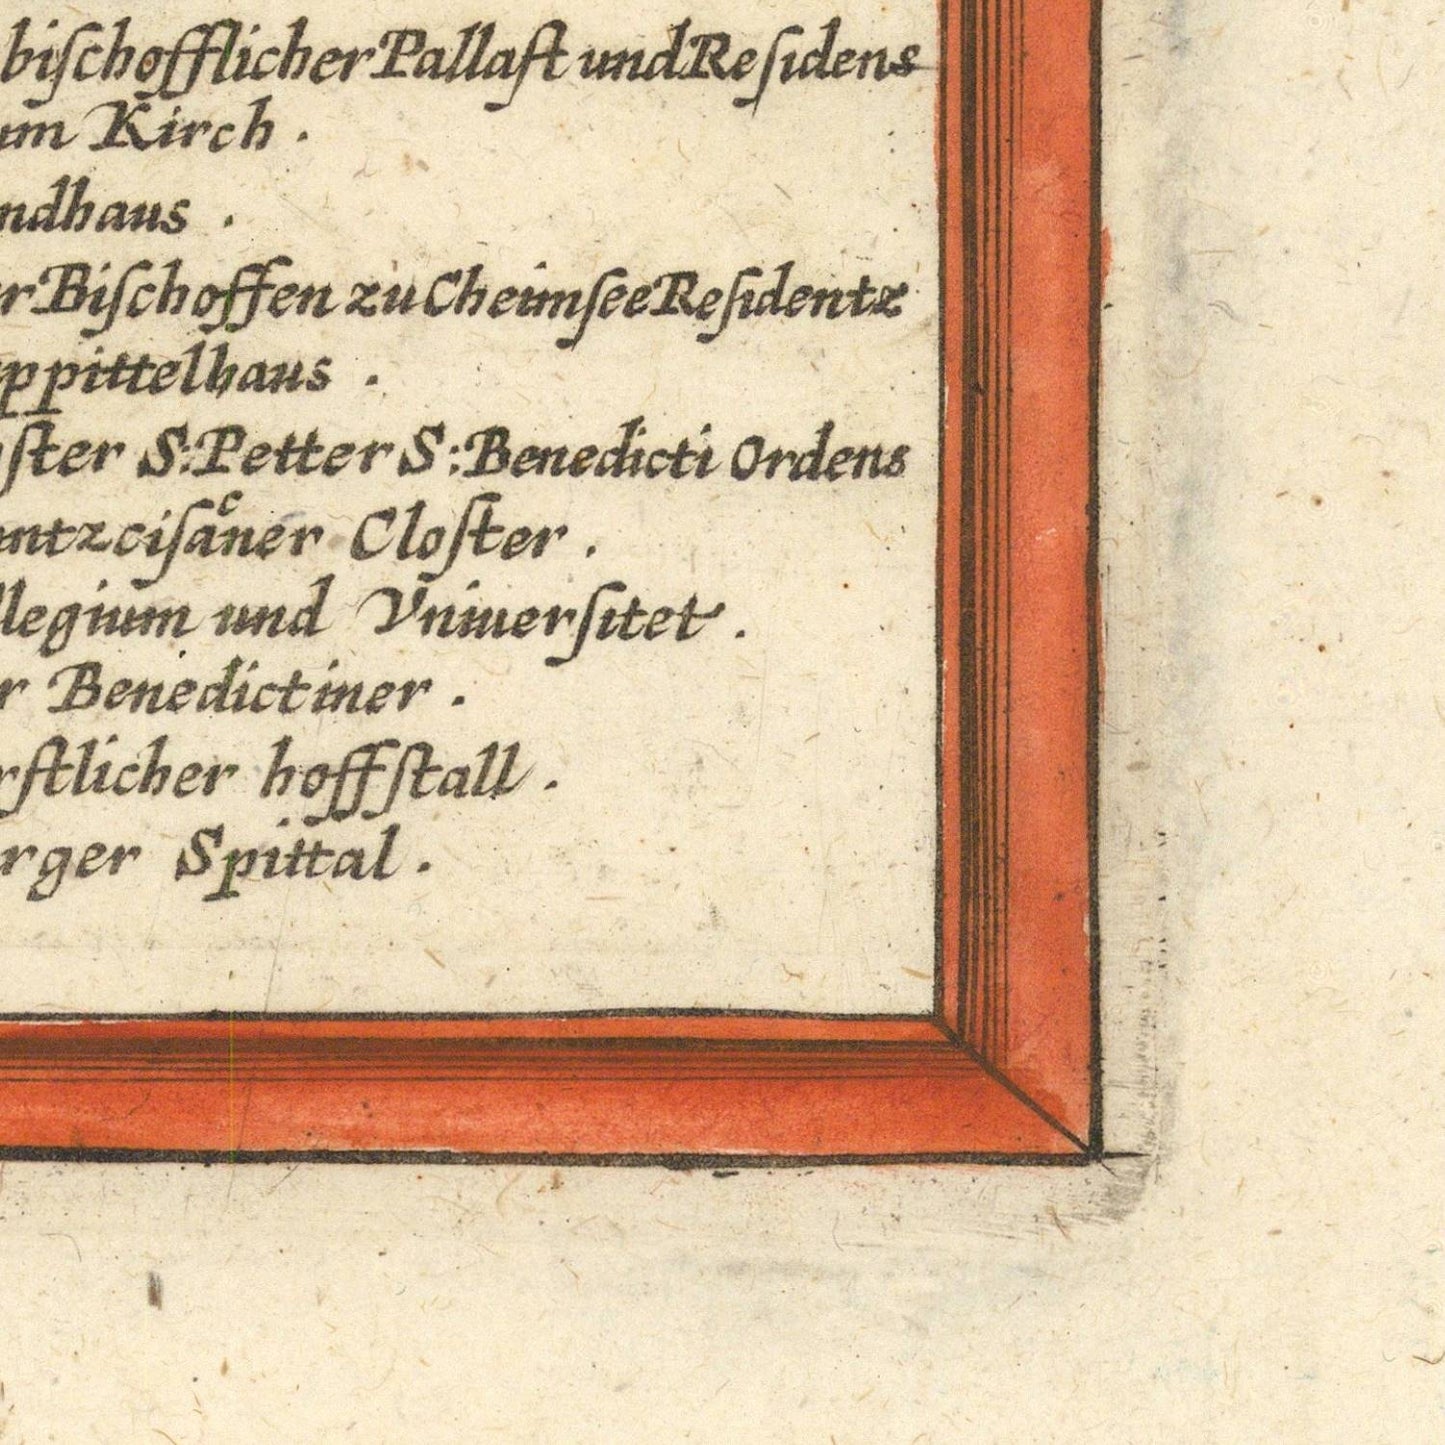 bischofflicher Pallast und Residens
um Kirch .
ndhaus .
er Bischoffen zu Cheimsee Residentz
ppittelhaus .
ster S: Petter S: Benedicti Ordens
ntzcisaͤner Closter .
llegium und Vniuersitet .
r Benedictiner .
rstlicher hoffstall .
rger Spittal .